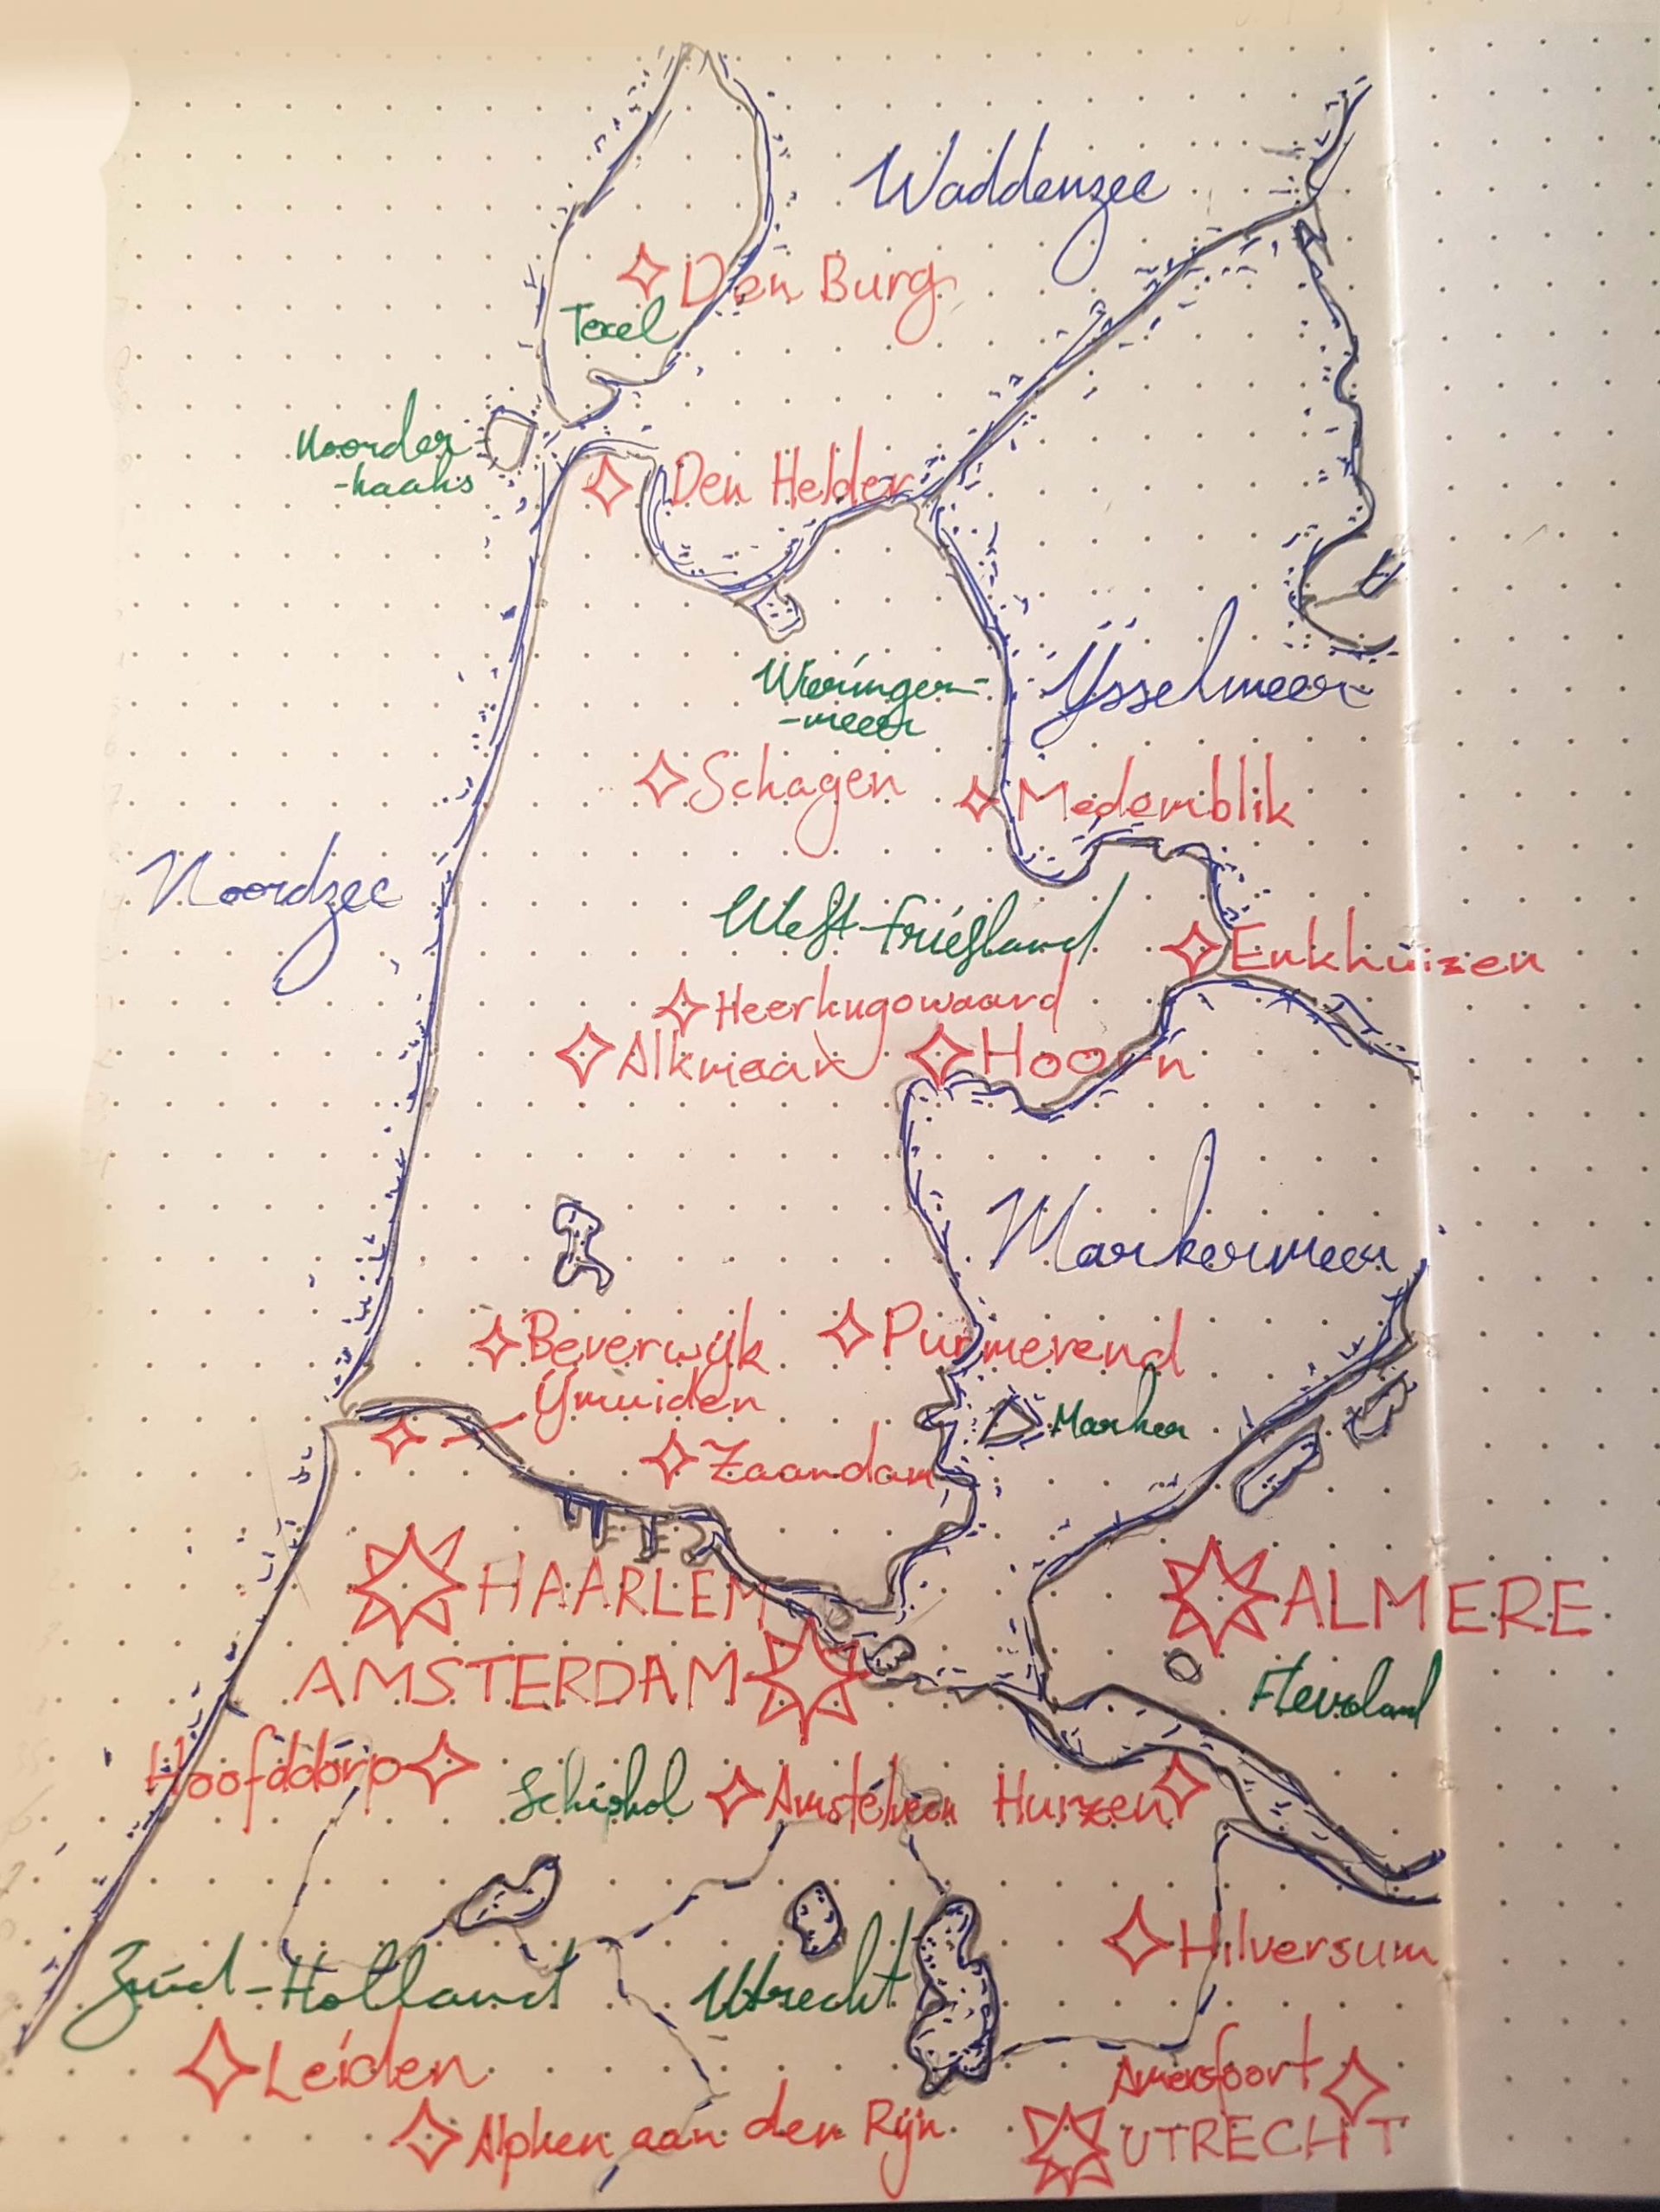 Waddenzee
Den Burg
Texel
Noorder
-haaks
Den Helder
Wieringer-
-meer
Ysselmeer
Schagen
Medemblik
Noordzee
West-Friesland
Enkhuizen
Heerhugowaard
Alkmaar
Hoorn
Markermeer
Beverwijk
Purmerend
IJmuiden
Marken
Zaandam
HAARLEM
ALMERE
AMSTERDAM
Flevoland
Hoofddorp
Schiphol
Amstelveen
Huizen
Hilversum
Zuid-Holland
Utrecht
Leiden
Amersfoort
Alphen aan den Rijn
UTRECHT